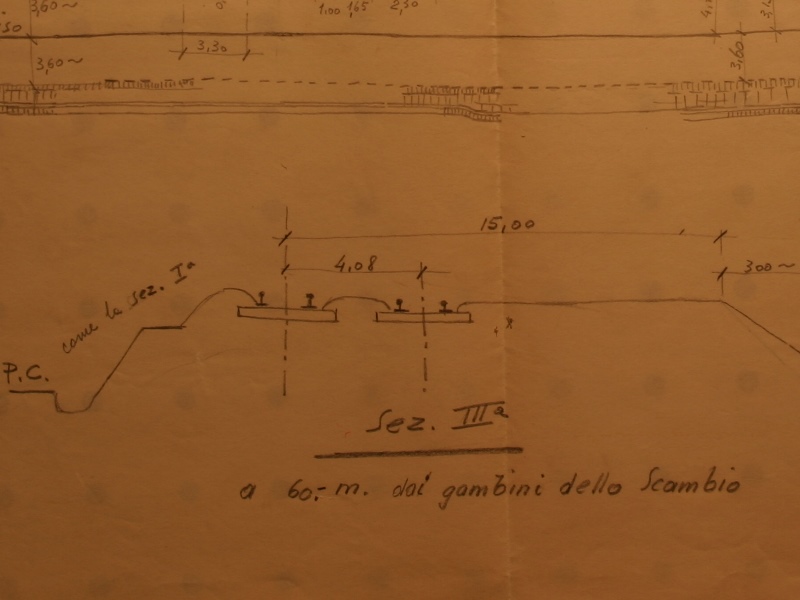 3,60~
1.00 1,65 2,30
50
3,30
3,60~
3,60
15,00
4,08
300~
come la sez. Iª
P.C.
Sez. IIIª
a 60,- m. dai gambini dello Scambio